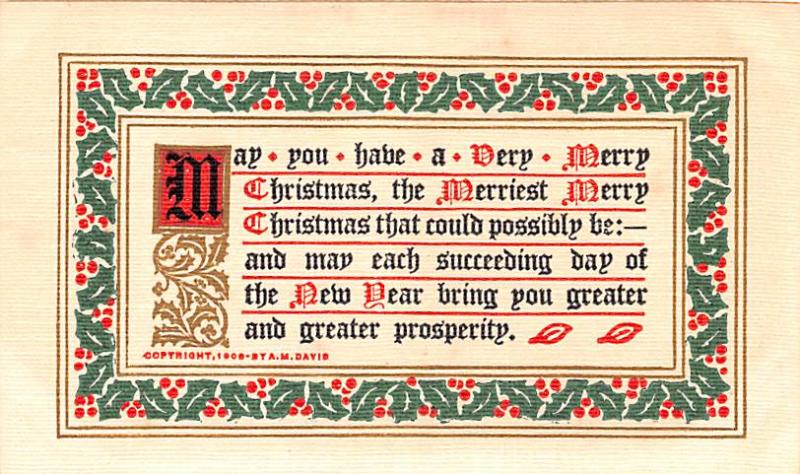 May • you • have • a • Very • Merry
Christmas, the Merriest Merry
Christmas that could possibly be:—
and may each succeeding day of
the New Year bring you greater
and greater prosperity.
COPYRIGHT, 1908 - BY A.M. DAVIS